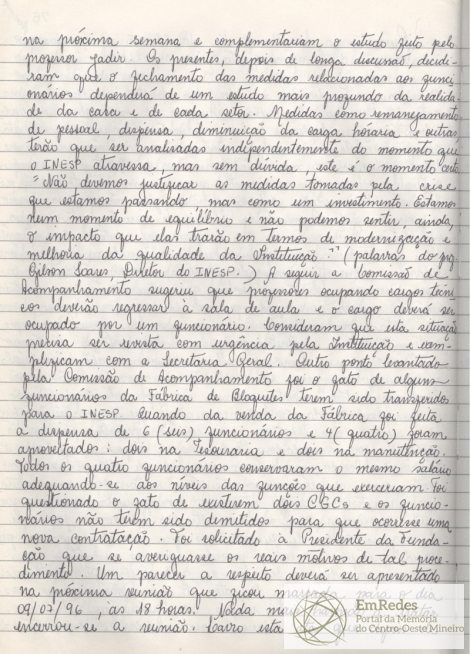 na próxima semana e complementariam o estudo feito pelo
professor Jadir. Os presentes, depois de longa discussão, decidi-
ram que o fechamento das medidas relacionadas aos funci-
onários dependerá de um estudo mais profundo da realida-
de da casa e de cada setor. Medidas como remanejamento
de pessoal, dispensa, diminuição da carga horária e outras
terão que ser analisadas independentemente do momento que
o INESP atravessa, mas sem dúvida, este é o momento certo
"Não devemos justificar as medidas tomadas pela crise
que estamos passando mas como um investimento. Estamos
num momento de equilíbrio e não podemos sentir, ainda,
o impacto que elas trarão em termos de modernização e
melhoria da qualidade da Instituição" (palavras do prof.
Gilson Soares, Diretor do INESP.) A seguir a Comissão de
Acompanhamento sugeriu que professores ocupando cargos técni-
cos deverão regressar à sala de aula e o cargo deverá ser
ocupado por um funcionário. Consideram que esta situação
precisa ser revista com urgência pela Instituição e exem-
plificam com a Secretaria Geral. Outro ponto levantado
pela Comissão de Acompanhamento foi o fato de alguns
funcionários da Fábrica de Bloquetes terem sido transferidos
para o INESP. Quando da venda da Fábrica foi feita
a dispensa de 6 (seis) funcionários e 4 (quatro) foram
aproveitados: dois na Tesouraria e dois na manutenção.
Todos os quatro funcionários conservaram o mesmo salário
adequando-se aos níveis das funções que exerceriam. Foi
questionado o fato de existirem dois CGCs e os funcio-
nários não terem sido demitidos para que ocorresse uma
nova contratação. Foi solicitado à Presidente da Funda-
ção que se averiguasse os reais motivos de tal proce-
dimento. Um parecer a respeito deverá ser apresentado
na próxima reunião que ficou marcada para o dia
09/07/96, às 18 horas. Nada mais
encerrou-se a reunião. Lavro esta
EmRedes
Portal da Memória
do Centro-Oeste Mineiro